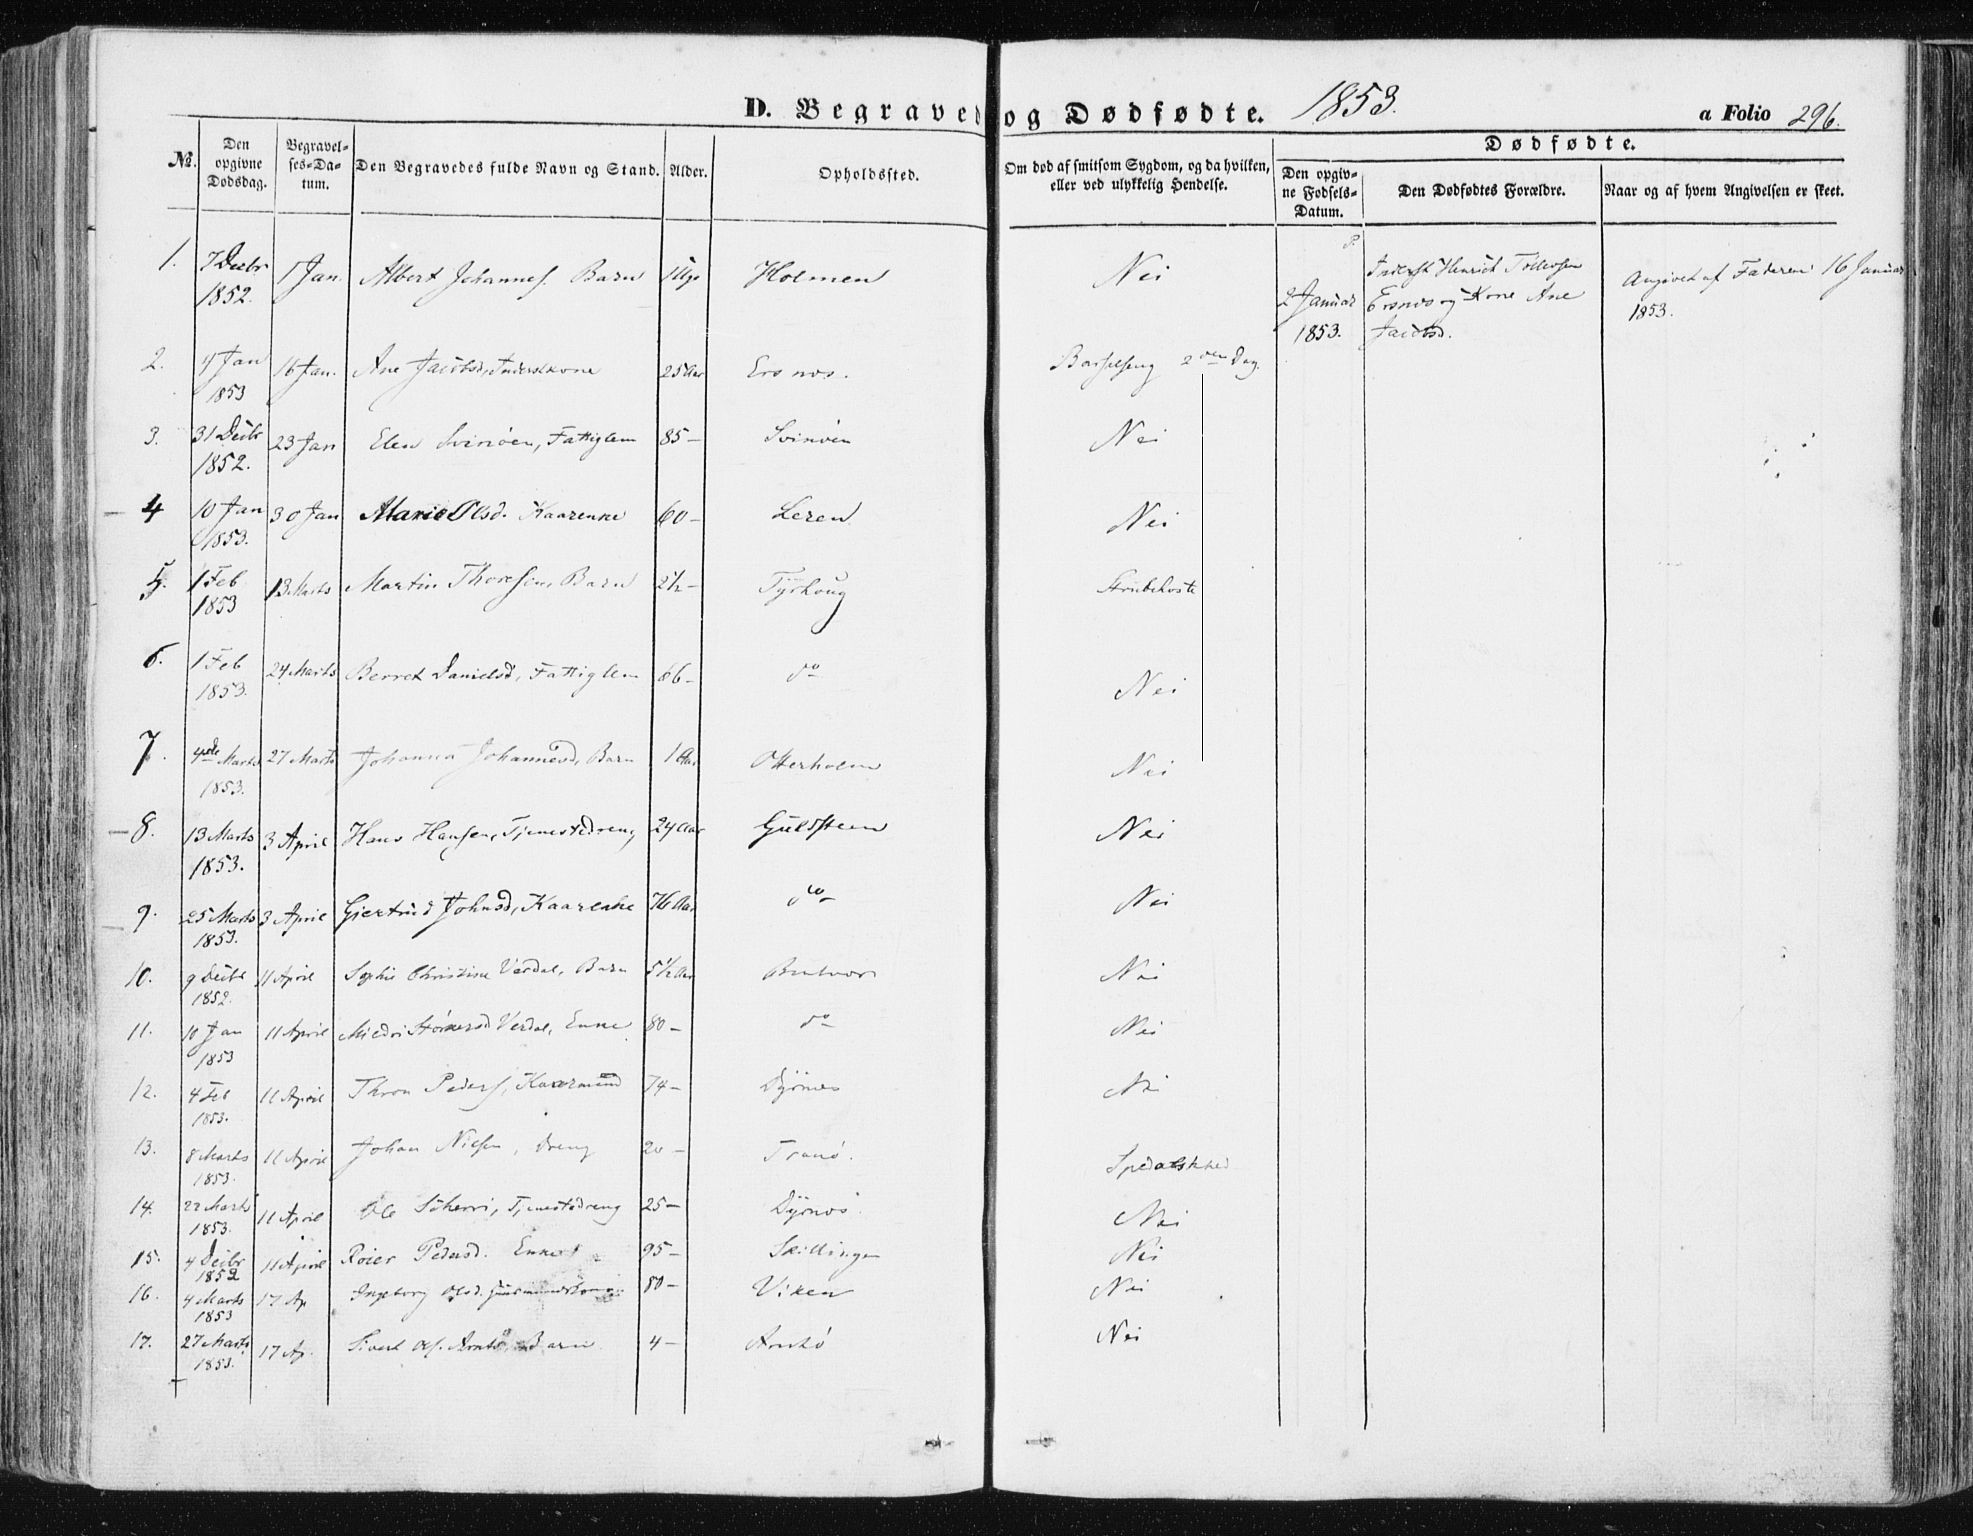 D. Begraved og Dødfødte. 1853. a Folio 296.
Dødfødte.
No. Den opgivne Dødsdag. Begravelses-Datum. Den Begravedes fulde Navn og Stand. Alder. Opholdssted. Om død af smitsom Sygdom, og da hvilken, eller ved ulykkelig Hendelse. Den opgivne Fødsels-Datum. Den Dødfødtes Forældre. Naar og af hvem Angivelsen er skeet.
1. 7 Decbr 1852. 1 Jan. Albert Johannes. Barn 1 Uge Holmen Nei
2 Januar 1853. Inderst Henrik Tollevsen Ersnes og Kone Ane Jacobsd. Angivet af Faderen 16 Januar 1853.
2. 4 Jan 1853 16 Jan. Ane Jacobsd, Inderstkone 25 Aar Ersnes. Barselseng 2den Dag.
3. 31 Decbr 1852. 23 Jan Elen Svinöen, Fattiglem 85 – Svinöen Nei
4 10 Jan 1853. 30 Jan Marie Olsd. Kaarenke 60 – Leren Nei
5. 1 Feb 1853 13 Marts Martin Thoresen, Barn 2½ – Tyrhoug Strubehoste
6. 1 Feb 1853. 24 Marts Berret Danielsd, Fattiglem 66 – do Nei
7. 4de Marts 1853. 27 Marts Johanna Johannesd, Barn 1 Aar Otterholm Nei
8. 13 Marts 1853. 3 April Hans Hansen, Tjenestedreng 24 Aar Guldsteen Nei
9. 25 Marts 1853. 3 April Giertrud Johnsd, Kaarenke 76 Aar do Nei
10. 9 Decbr 1852. 11 April Sophie Christine Verdal, Barn 5½ Aar Brutvær Nei
11. 10 Jan 1853 11 April Verdal, Enke 80 – do Nei
12. 4 Feb 1853. 11 April Thron Peders, Kaarmand 74 – Dyrnes Nei
13. 8 Marts 1853. 11 April Johan Nielsen, Dreng 20 – Tranö. Spedalskhed
14. 22 Marts 1853. 11 April Ole Tjenestedreng 25 – Dyrnes. Nei
15. 4 Decbr 1852 11 April Röier Pedersd. Enke 95 – Skillingen Nei
16. 4 Marts 1853 17 Ap Ingeborg Olsd. Huusmandskone 80 – Viken Nei
17. 27 Marts 1853. 17 Ap. Sivert Ols. Arntö, Barn 4 – Arntö Nei